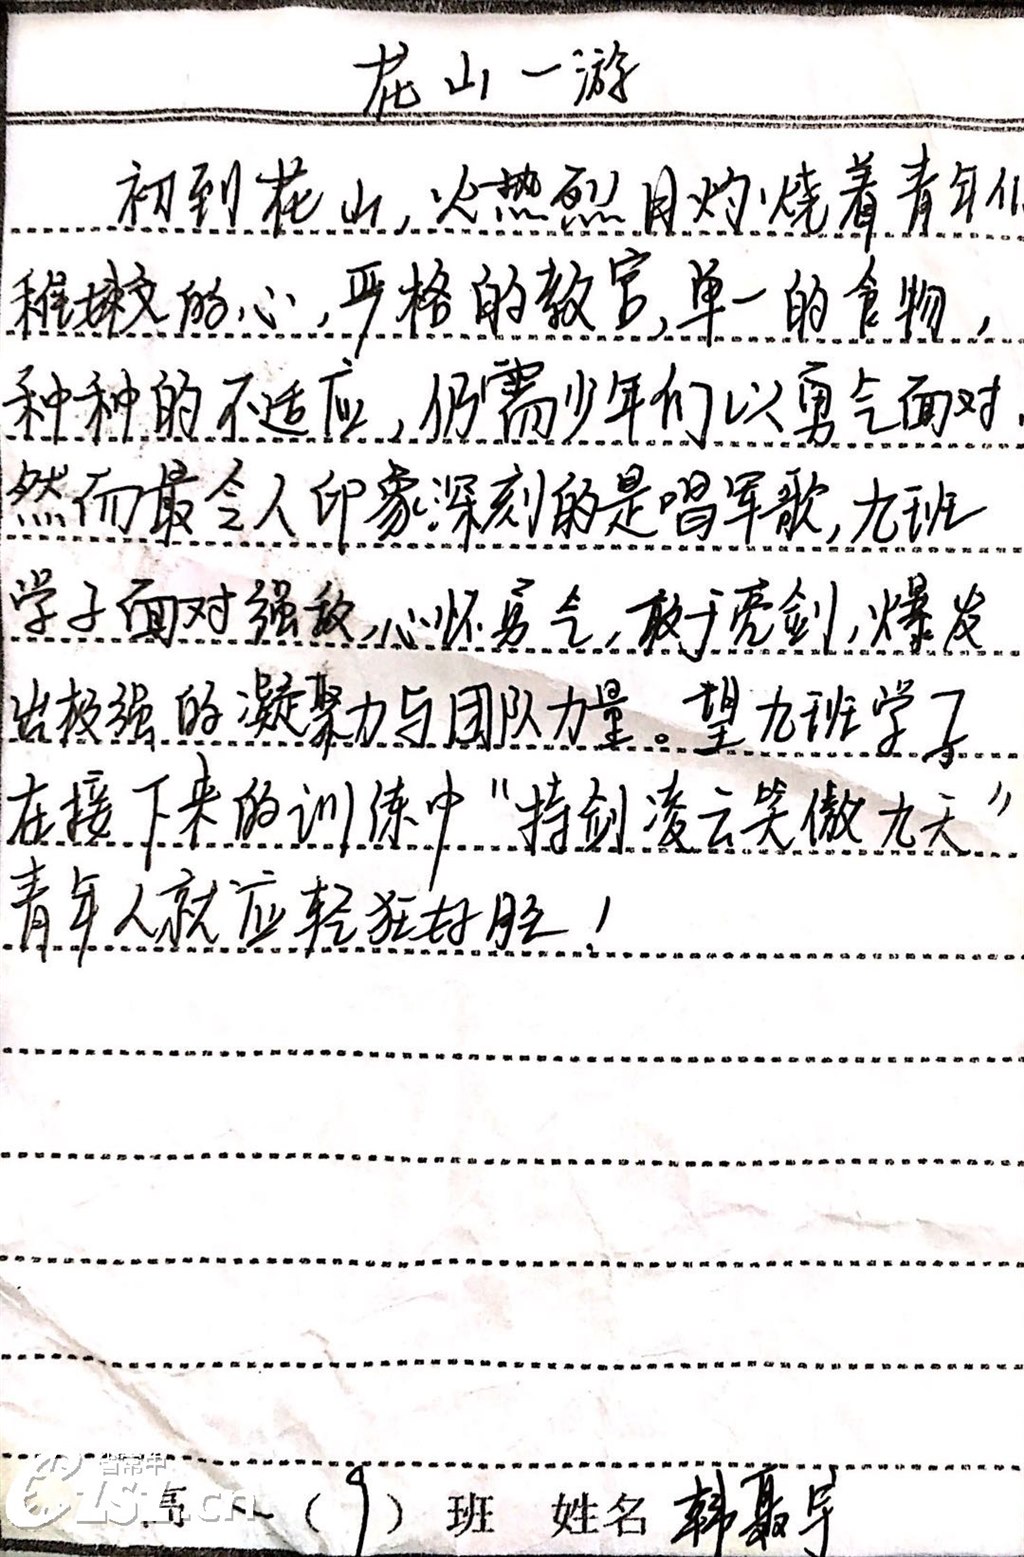 花山一游
初到花山,火热烈日灼烧着青年们
稚嫩的心,严格的教官,单一的食物,
种种的不适应,仍需少年们以勇气面对.
然而最令人印象深刻的是唱军歌,九班
学子面对强敌,心怀勇气,敢于亮剑,爆发
出极强的凝聚力与团队力量。望九班学子
在接下来的训练中"持剑凌云笑傲九天"
青年人就应轻狂好胜!
高一(9)班 姓名 韩聂宇
省常中